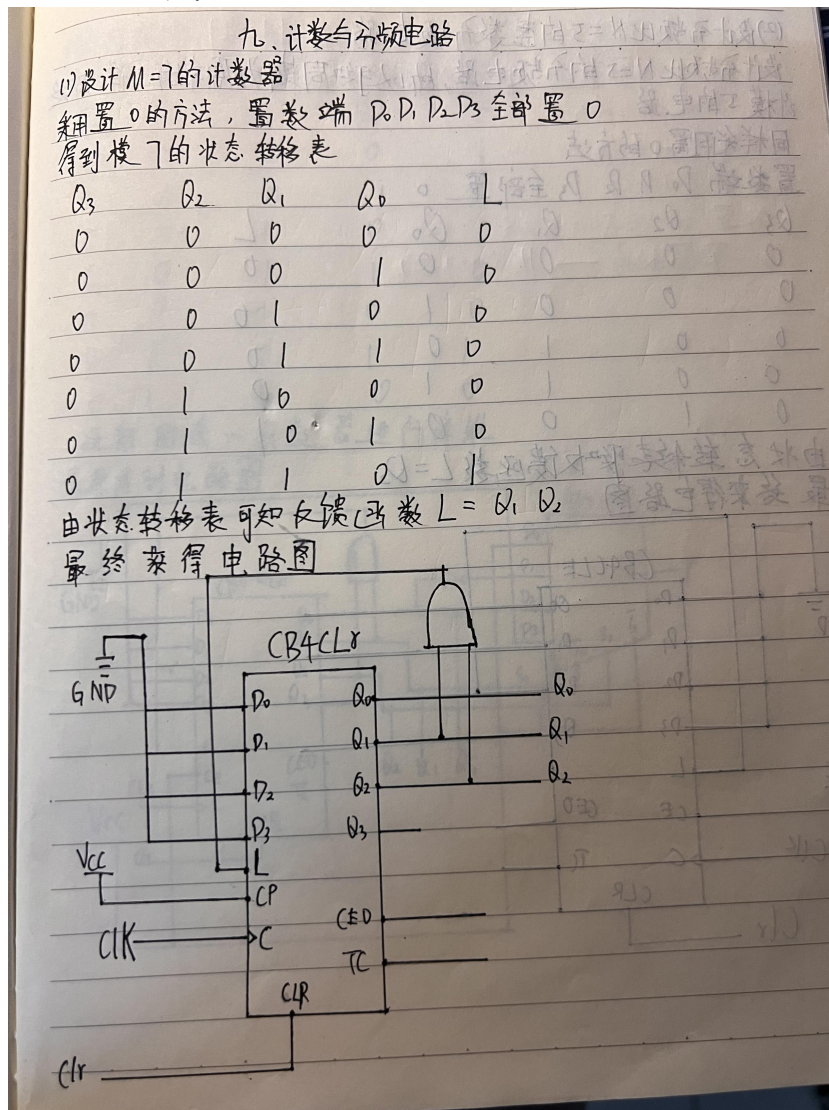 九、计数与分频电路
(1) 设计 M=7的计数器
采用置0的方法，置数端 D0 D1 D2 D3 全部置 0
得到模7的状态转移表
Q3 Q2 Q1 Q0 L
0 0 0 0 0
0 0 0 1 0
0 0 1 0 0
0 0 1 1 0
0 1 0 0 0
0 1 0 1 0
0 1 1 0 1
由状态转移表可知反馈函数 L = Q1 Q2
最终获得电路图
CB4CLr
GND
D0 Q0 Q0
D1 Q1 Q1
D2 Q2 Q2
D3 Q3
L
VCC
CP
CEO
Clk C
TC
CLR
Clr